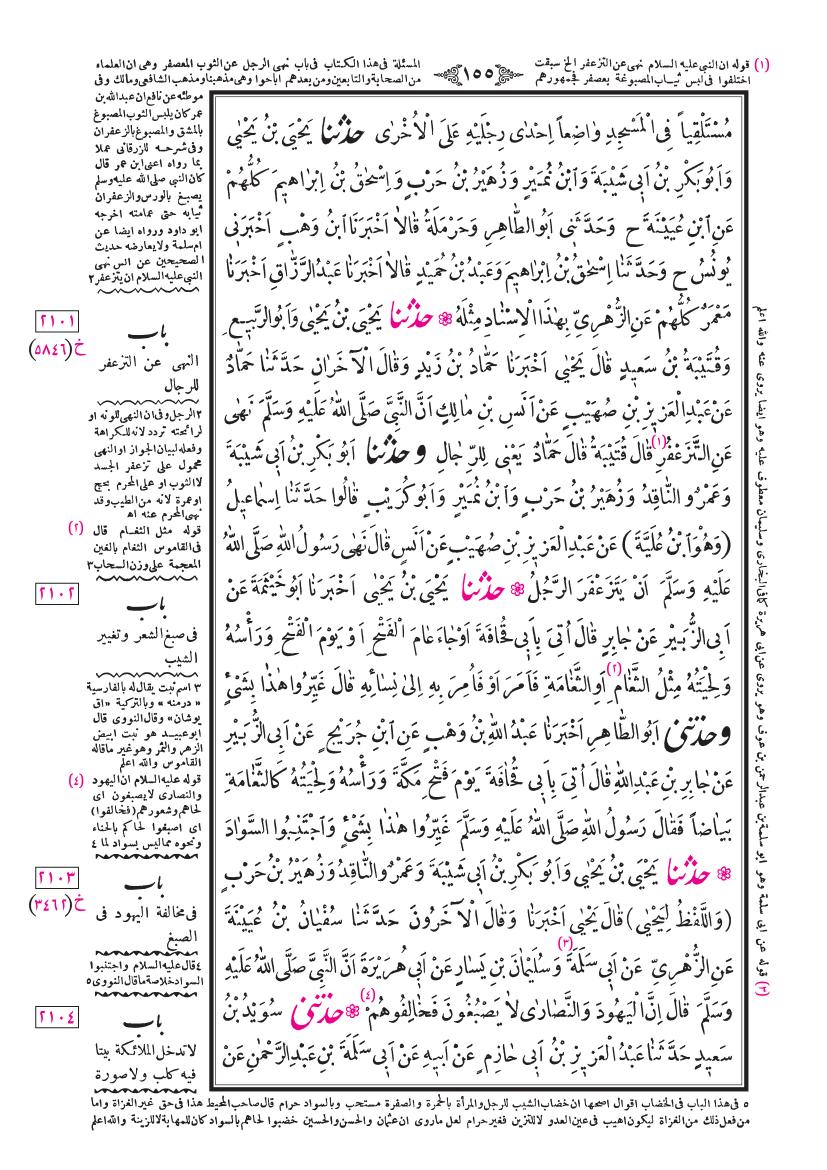 ١٥٥
(١) قوله ان النبي عليه السلام نهى عن التزعفر الخ سبقت
اختلفوا فى لبس ثياب المصبوغة بعصفر فجمهورهم
المسئلة فى هذا الكتاب فى باب نهى الرجل عن الثوب المعصفر وهى ان العلماء
من الصحابة والتابعين ومن بعدهم اباحوا وهى مذهبنا ومذهب الشافعى ومالك وفى
مُسْتَلْقِياً فِى الْمَسْجِدِ وَاضِعاً اِحْدٰى رِجْلَيْهِ عَلَى الْاُخْرٰى حَدَّثَنَا يَحْيَى بْنُ يَحْيٰى
وَاَبُو بَكْرِ بْنُ اَبِى شَيْبَةَ وَابْنُ نُمَيْرٍ وَزُهَيْرُ بْنُ حَرْبٍ وَاِسْحٰقُ بْنُ اِبْرَاهِيمَ كُلُّهُمْ
عَنِ ابْنِ عُيَيْنَةَ ح وَحَدَّثَنِى اَبُو الطَّاهِرِ وَحَرْمَلَةُ قَالَا اَخْبَرَنَا ابْنُ وَهْبٍ اَخْبَرَنِى
يُونُسُ ح وَحَدَّثَنَا اِسْحٰقُ بْنُ اِبْرَاهِيمَ وَعَبْدُ بْنُ حُمَيْدٍ قَالَا اَخْبَرَنَا عَبْدُ الرَّزَّاقِ اَخْبَرَنَا
مَعْمَرٌ كُلُّهُمْ عَنِ الزُّهْرِىِّ بِهٰذَا الْاِسْنَادِ مِثْلَهُ ❁ حَدَّثَنَا يَحْيَى بْنُ يَحْيٰى وَاَبُو الرَّبِيعِ
وَقُتَيْبَةُ بْنُ سَعِيدٍ قَالَ يَحْيٰى اَخْبَرَنَا حَمَّادُ بْنُ زَيْدٍ وَقَالَ الْآخَرَانِ حَدَّثَنَا حَمَّادٌ
عَنْ عَبْدِ الْعَزِيزِ بْنِ صُهَيْبٍ عَنْ اَنَسِ بْنِ مَالِكٍ اَنَّ النَّبِىَّ صَلَّى اللهُ عَلَيْهِ وَسَلَّمَ نَهٰى
عَنِ التَّزَعْفُرِ (١) قَالَ قُتَيْبَةُ قَالَ حَمَّادٌ يَعْنِى لِلرِّجَالِ وَحَدَّثَنَا اَبُو بَكْرِ بْنُ اَبِى شَيْبَةَ
وَعَمْرٌو النَّاقِدُ وَزُهَيْرُ بْنُ حَرْبٍ وَابْنُ نُمَيْرٍ وَاَبُو كُرَيْبٍ قَالُوا حَدَّثَنَا اِسْمَاعِيلُ
(وَهُوَ ابْنُ عُلَيَّةَ) عَنْ عَبْدِ الْعَزِيزِ بْنِ صُهَيْبٍ عَنْ اَنَسٍ قَالَ نَهٰى رَسُولُ اللهِ صَلَّى اللهُ
عَلَيْهِ وَسَلَّمَ اَنْ يَتَزَعْفَرَ الرَّجُلُ ❁ حَدَّثَنَا يَحْيَى بْنُ يَحْيٰى اَخْبَرَنَا اَبُو خَيْثَمَةَ عَنْ
اَبِى الزُّبَيْرِ عَنْ جَابِرٍ قَالَ اُتِىَ بِاَبِى قُحَافَةَ اَوْ جَاءَ عَامَ الْفَتْحِ اَوْ يَوْمَ الْفَتْحِ وَرَأْسُهُ
وَلِحْيَتُهُ مِثْلُ الثَّغَامِ (٢) اَوِ الثَّغَامَةِ فَاَمَرَ اَوْ فَاُمِرَ بِهِ اِلٰى نِسَائِهِ قَالَ غَيِّرُوا هٰذَا بِشَىْءٍ
وَحَدَّثَنِى اَبُو الطَّاهِرِ اَخْبَرَنَا عَبْدُ اللهِ بْنُ وَهْبٍ عَنِ ابْنِ جُرَيْجٍ عَنْ اَبِى الزُّبَيْرِ
عَنْ جَابِرِ بْنِ عَبْدِ اللهِ قَالَ اُتِىَ بِاَبِى قُحَافَةَ يَوْمَ فَتْحِ مَكَّةَ وَرَأْسُهُ وَلِحْيَتُهُ كَالثَّغَامَةِ
بَيَاضاً فَقَالَ رَسُولُ اللهِ صَلَّى اللهُ عَلَيْهِ وَسَلَّمَ غَيِّرُوا هٰذَا بِشَىْءٍ وَاجْتَنِبُوا السَّوَادَ
❁ حَدَّثَنَا يَحْيَى بْنُ يَحْيٰى وَاَبُو بَكْرِ بْنُ اَبِى شَيْبَةَ وَعَمْرٌو النَّاقِدُ وَزُهَيْرُ بْنُ حَرْبٍ
(وَاللَّفْظُ لِيَحْيٰى) قَالَ يَحْيٰى اَخْبَرَنَا وَقَالَ الْآخَرُونَ حَدَّثَنَا سُفْيَانُ بْنُ عُيَيْنَةَ
عَنِ الزُّهْرِىِّ عَنْ اَبِى سَلَمَةَ (٣) وَسُلَيْمَانَ بْنِ يَسَارٍ عَنْ اَبِى هُرَيْرَةَ اَنَّ النَّبِىَّ صَلَّى اللهُ عَلَيْهِ
وَسَلَّمَ قَالَ اِنَّ الْيَهُودَ وَالنَّصَارٰى لَا يَصْبُغُونَ فَخَالِفُوهُمْ (٤) ❁ حَدَّثَنِى سُوَيْدُ بْنُ
سَعِيدٍ حَدَّثَنَا عَبْدُ الْعَزِيزِ بْنُ اَبِى حَازِمٍ عَنْ اَبِيهِ عَنْ اَبِى سَلَمَةَ بْنِ عَبْدِ الرَّحْمٰنِ عَنْ
موطئه عن نافع ان عبدالله بن
عمر كان يلبس الثوب المصبوغ
بالمشق والمصبوغ بالزعفران
وفى شرحه للزرقانى عملا
بما رواه اعنى ابن عمر قال
كان النبى صلى الله عليه وسلم
يصبغ بالورس والزعفران
ثيابه حتى عمامته اخرجه
ابو داود ورواه ايضا عن
ام سلمة ولا يعارضه حديث
الصحيحين عن انس نهى
النبى عليه السلام ان يتزعفر ٢
٢١٠١
خ (٥٨٤٦)
باب
النهى عن التزعفر
للرجال
٢ الرجل وفى ان النهى للونه او
لرائحته تردد لانه للكراهة
وفعله لبيان الجواز او النهى
محمول على تزعفر الجسد
لا الثوب او على المحرم بحج
او عمرة لانه من الطيب وقد
نهى المحرم عنه اه
(٢) قوله مثل الثغام قال
فى القاموس الثغام بالغين
المعجمة على وزن السحاب ٣
٢١٠٢
باب
فى صبغ الشعر وتغيير
الشيب
٣ اسم نبت يقال له بالفارسية
« درمنه » وبالتركية « اق
يوشان » وقال النووى قال
ابو عبيد هو نبت ابيض
الزهر والثمر وهو غير ما قاله
القاموس والله اعلم
(٤) قوله عليه السلام ان اليهود
والنصارى لا يصبغون اى
لحاهم وشعورهم (فخالفوا)
اى اصبغوا لحاكم بالحناء
ونحوه مما ليس بسواد لما ٤
٢١٠٣
خ (٣٤٦٢)
باب
فى مخالفة اليهود فى
الصبغ
٤ قال عليه السلام واجتنبوا
السواد خلاصة ما قال النووى ٥
٢١٠٤
باب
لا تدخل الملائكة بيتا
فيه كلب ولا صورة
(٣) قوله عن ابى سلمة وهو ابو سلمة بن عبدالرحمن بن عوف وهو يروى عن ابى هريرة كما فى البخارى وسليمان معطوف عليه وهو ايضا يروى عنه والله اعلم
٥ فى هذا الباب فى الخضاب اقوال اصحها ان خضاب الشيب للرجل والمرأة بالحمرة والصفرة مستحب وبالسواد حرام قال صاحب المحيط هذا فى حق غير الغزاة واما
من فعل ذلك من الغزاة ليكون اهيب فى عين العدو لا للتزين فغير حرام لعل ما روى ان عثمان والحسن والحسين خضبوا لحاهم بالسواد كان للمهابة لا للزينة والله اعلم